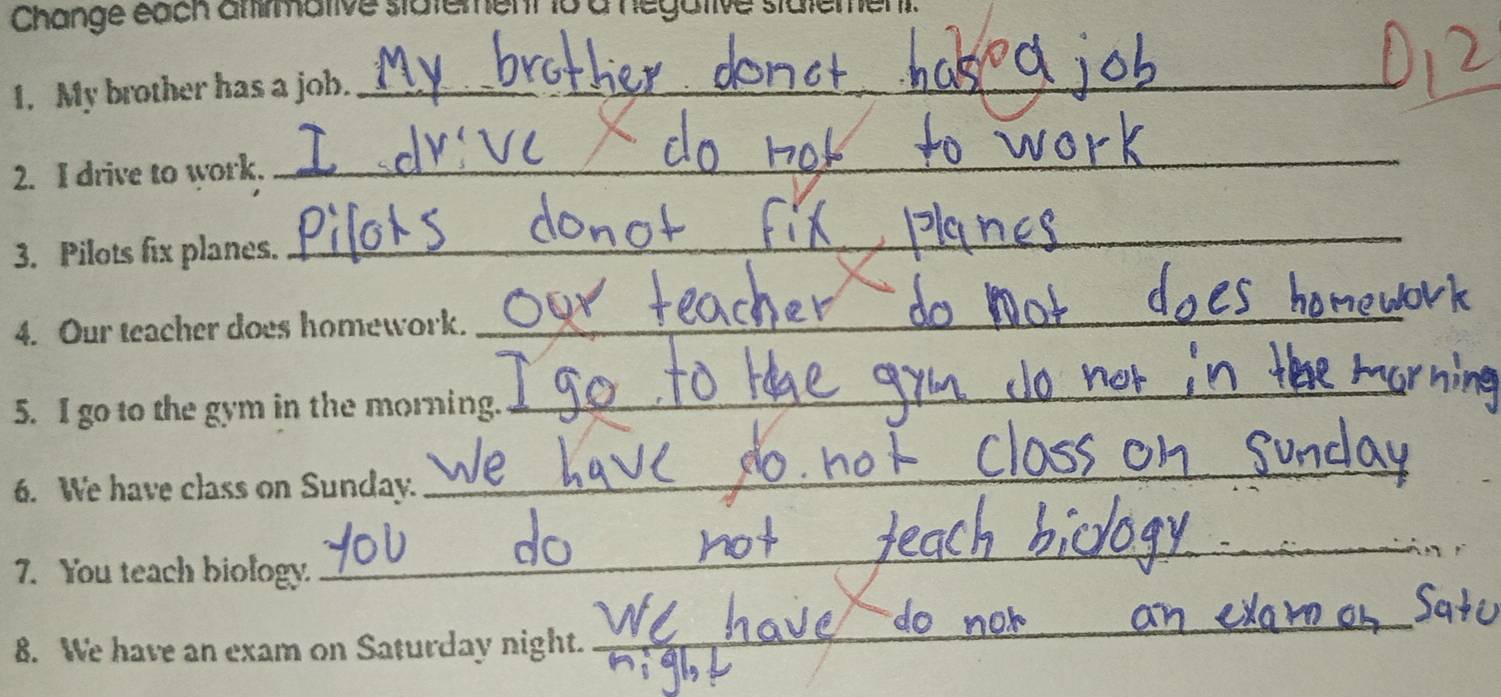 Change each affirmative statement to a negative statement.
1. My brother has a job. My brother donot has a job
2. I drive to work. I drive do not to work
3. Pilots fix planes. Pilots donot fix planes
4. Our teacher does homework. our teacher do not does homework
5. I go to the gym in the morning. I go to the gym do not in the morning
6. We have class on Sunday. We have do not class on sunday
7. You teach biology. you do not teach biology
8. We have an exam on Saturday night. We have do not an exam on Satu
night